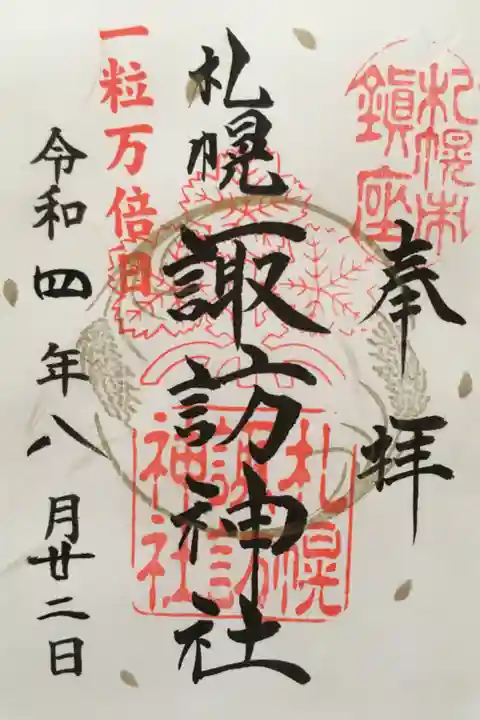 札幌市
鎮座
奉拝
札幌
諏訪神社
札幌
諏訪
神社
一粒万倍日
令和四年八月廿二日